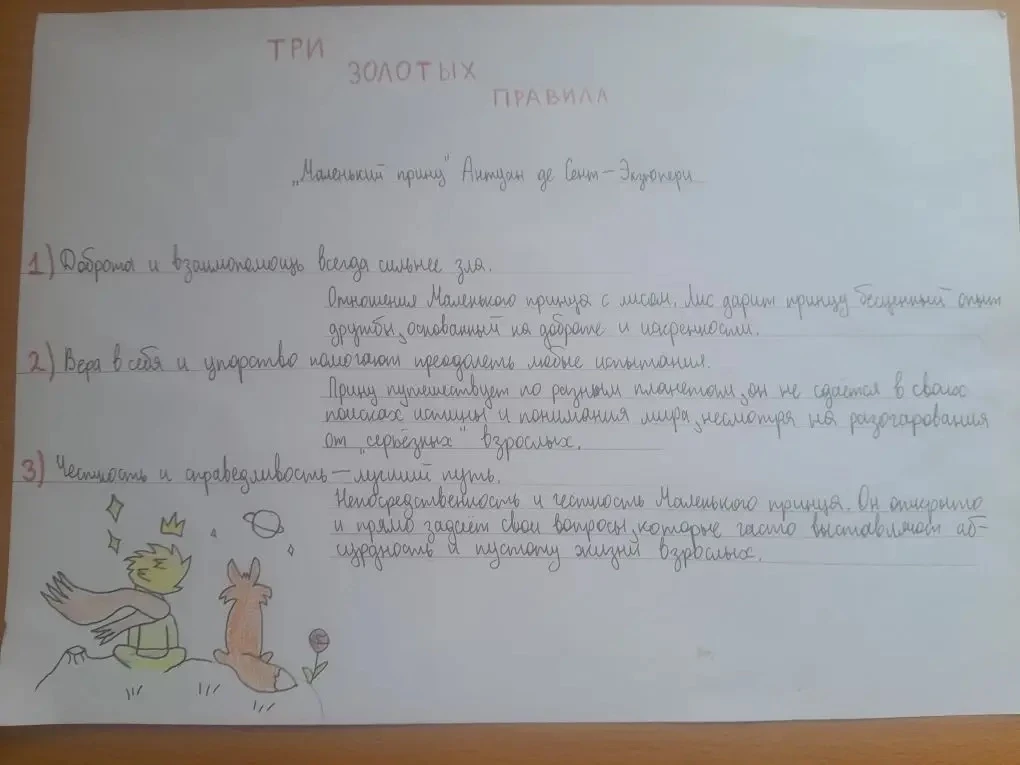 ТРИ
ЗОЛОТЫХ
ПРАВИЛА
„Маленький принц" Антуан де Сент-Экзюпери
1) Доброта и взаимопомощь всегда сильнее зла.
Отношения Маленького принца с лисом. Лис дарит принцу бесценный опыт
дружбы, основанный на доброте и искренности.
2) Вера в себя и упорство помогают преодолеть любые испытания.
Принц путешествует по разным планетам, он не сдаётся в своих
поисках истины и понимания мира, несмотря на разочарования
от „серьёзных" взрослых.
3) Честность и справедливость — лучший путь.
Непосредственность и честность Маленького принца. Он открыто
и прямо задаёт свои вопросы, которые часто выставляют аб-
сурдность и пустоту жизни взрослых.